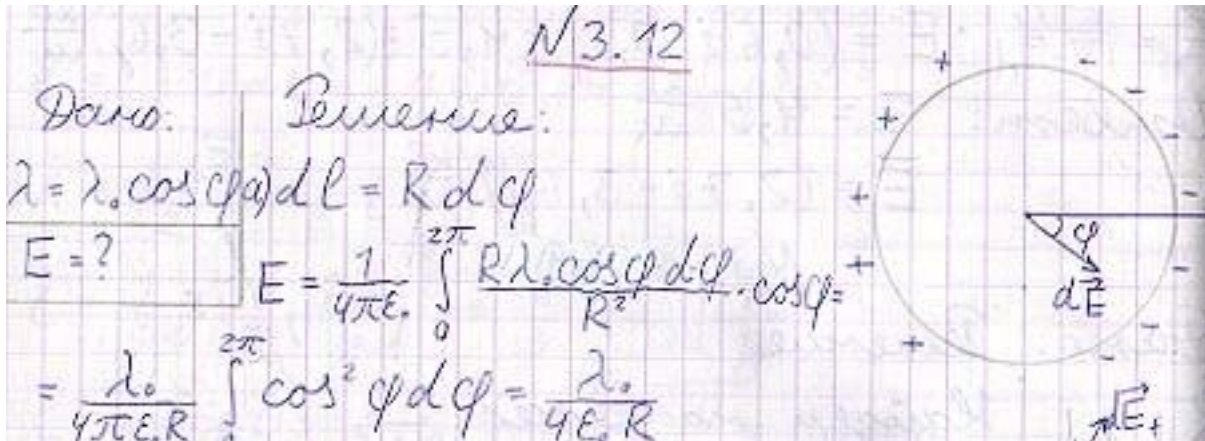 N3.12
Дано: Решение:
λ = λ₀ cos φ а) dl = R dφ
E = ?
E = 1/4πε₀ ∫₀^2π Rλ₀ cosφ dφ / R² · cosφ =
= λ₀/4πε₀R ∫₀^2π cos² φ dφ = λ₀/4ε₀R
+ + + + + - - - - - -
φ
dE⃗
dE⃗₊